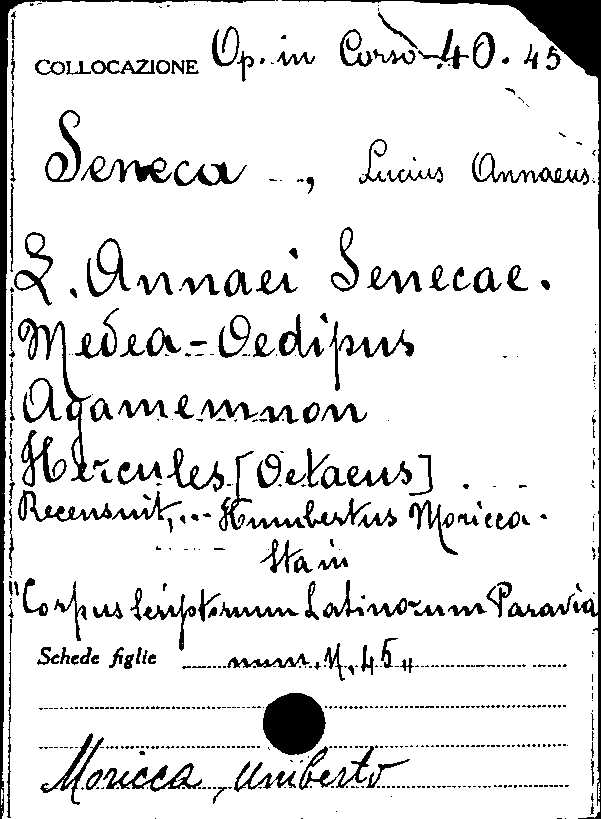 COLLOCAZIONE Op. in Corso 40. 45
Seneca ..., Lucius Annaeus
L. Annaei Senecae.
Medea - Oedipus
Agamemnon
Hercules [Oetaeus] ...
Recensuit, ... Humbertus Moricca.
Sta in
"Corpus Scriptorum Latinorum Paravia
Schede figlie num. N. 45"
Moricca, Umberto